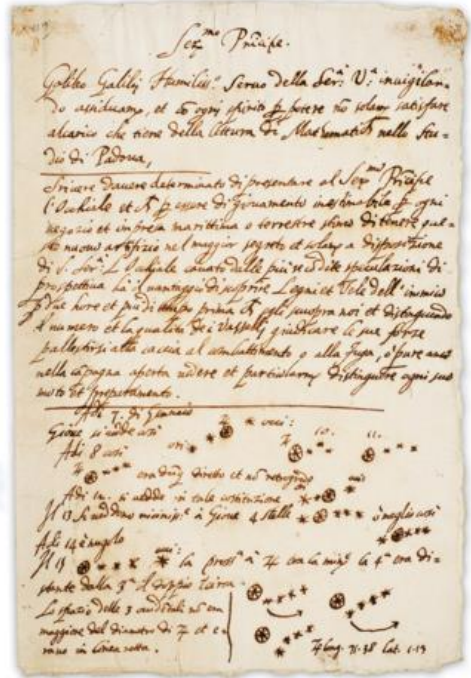 Ser.mo Principe.
Galileo Galilei Humiliss.o Servo della Ser.a V.a invigilan-
do assiduam.te, et cō ogni spirito p potere nō solam.te satisfare
al carico che tiene della lettura di Mathematich nello Stu-
dio di Padova,
Scrivere d'avere determinato di presentare al Ser.mo Principe
l'Occhiale et p essere di giovamento inestimabile p ogni
negozio et impresa marittima o terrestre stimo di tenere que-
sto nuovo artifizio nel maggior segreto et solam.te a disposizione
di S. Ser.a L'Occhiale cavato dalle più recondite speculazioni di
prospettiva ha il vantaggio di scoprire Legni et Vele dell'inimico
p due hore et più di tempo prima ch egli scuopra noi et distinguendo
il numero et la qualità dei Vasselli giudicare le sue forze
pallestirsi alla caccia al combattimento o alla fuga, o pure anco
nella capagna aperta vedere et particolarm.te distinguere ogni suo
moto et preparamento.
Adi 7. di Gennaio
Giove si vede così
Adi 8 così
10. 11.
era dūq diretto et nō retrogrado
Adi 12. si vedde in tale costituzione
Il 13 si veddono vicinis.e a Giove 4 stelle ò meglio così
Adi 14 è nugolo
Il 15 la pross.a à ♃ era la min.e la 4.a era di-
stante dalla 3.a il doppio circa
Lo spazio delle 3 occidentali nō era
maggiore del diametro di ♃ et e-
rano in linea retta.
♃ long. 71.38 lat. 1.13